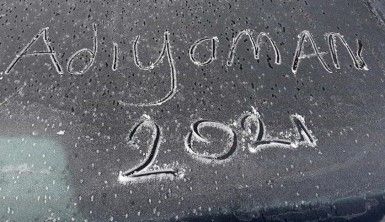 Adıyaman
2021